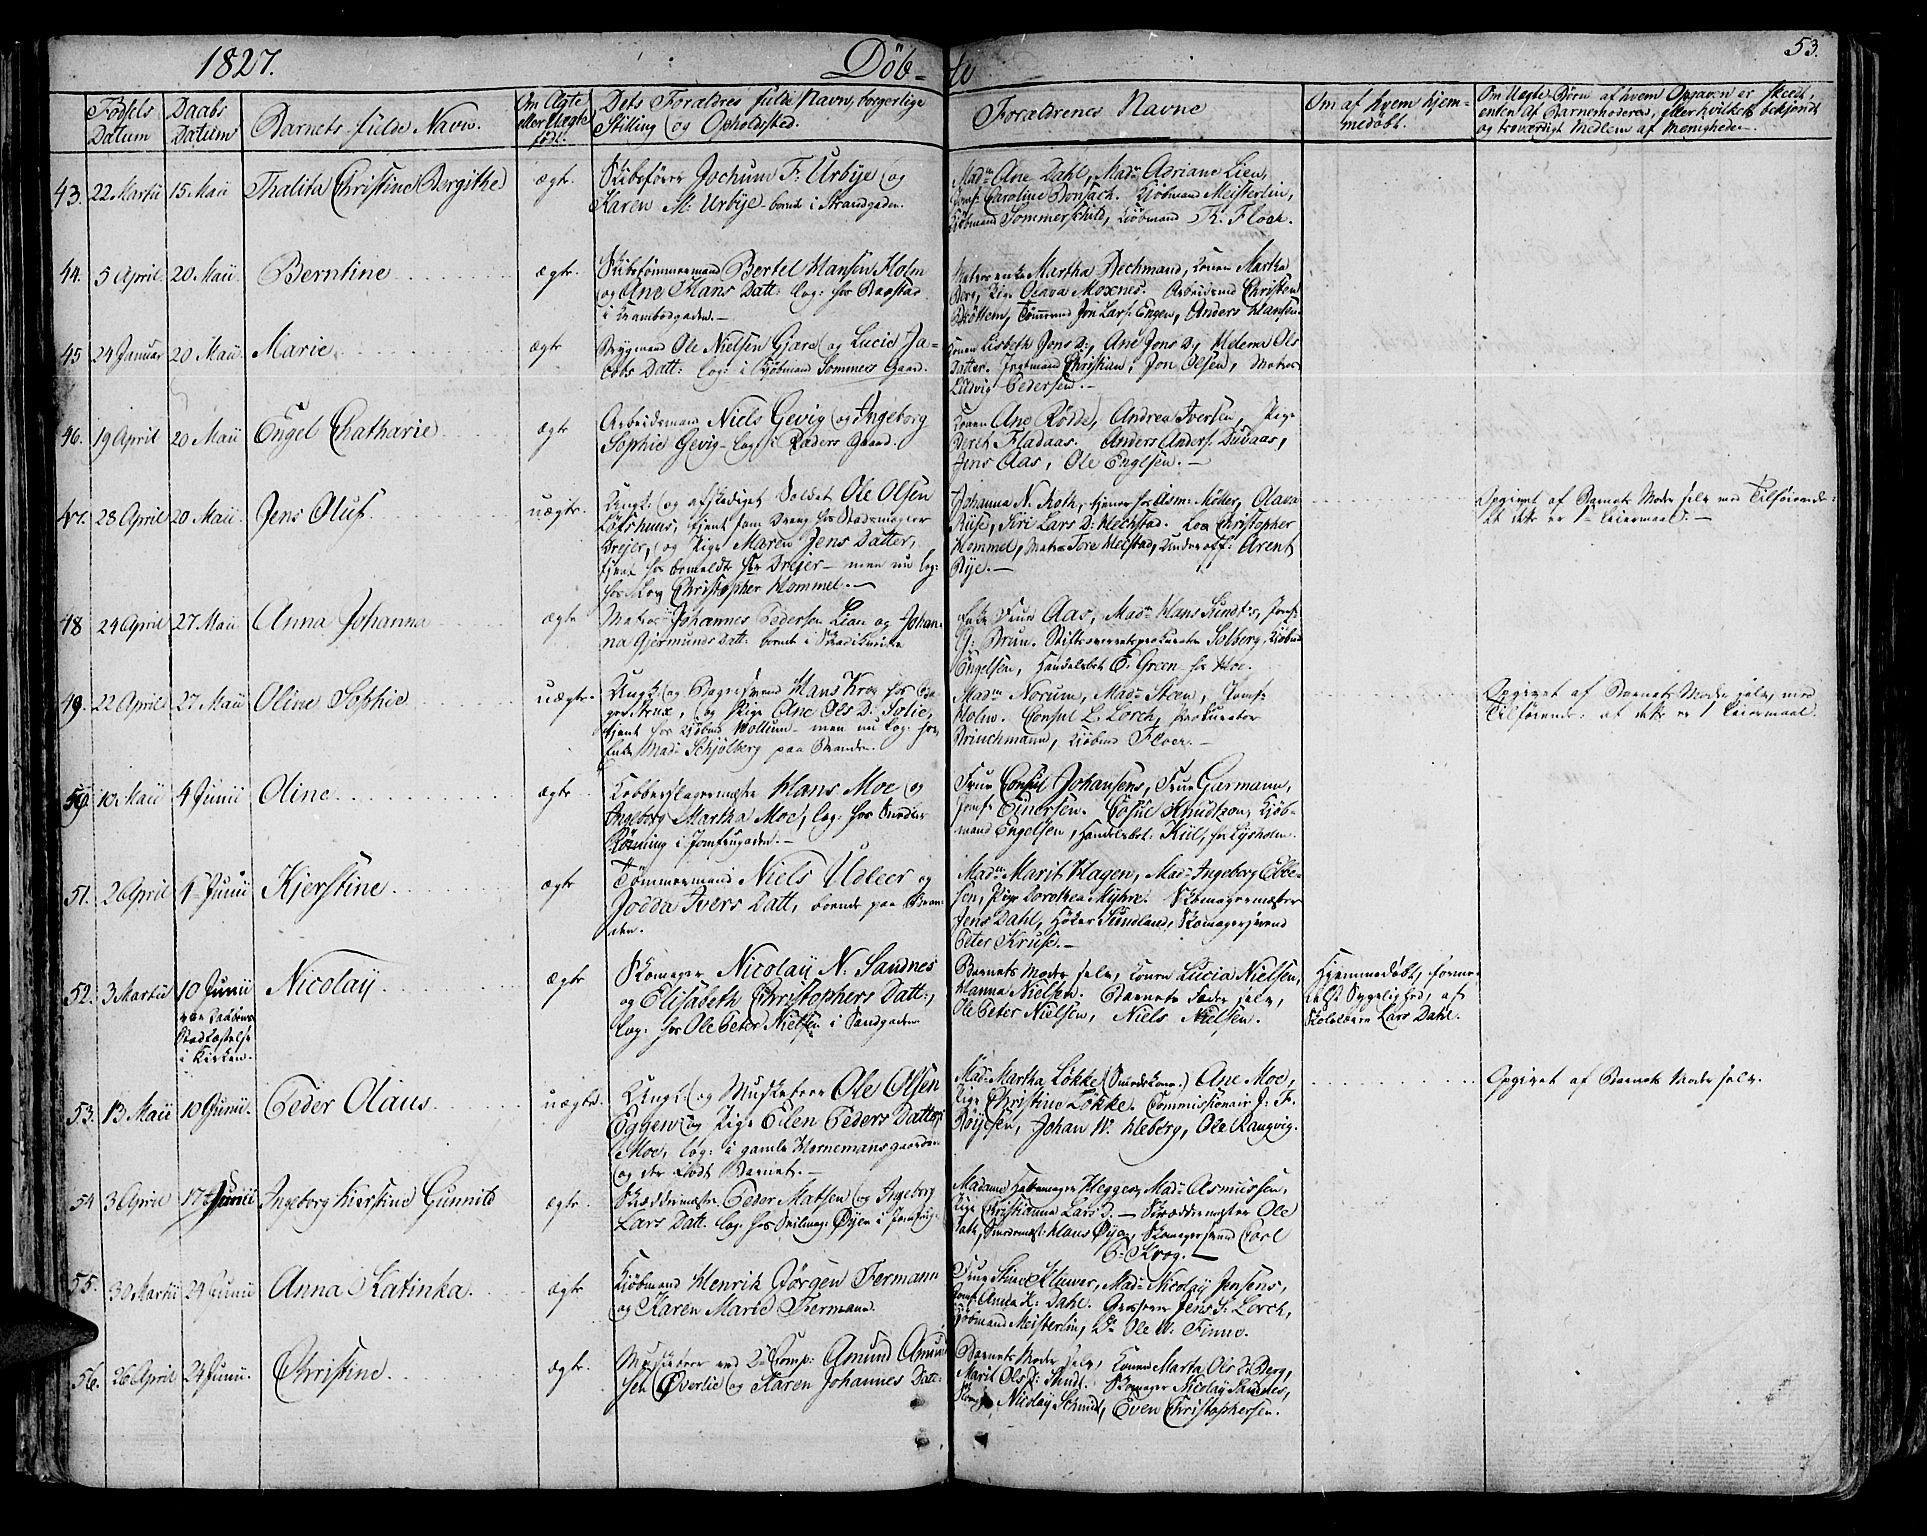 1827.
Döb-
te
53.
Födsels Datum
Daabs Datum
Barnets fulde Navn.
Om Ægte eller Uægte født.
Dets Forældres fulde Navn, borgerlige
Stilling og Opholdsted.
Forældrenes Navne
Om af hvem hjem-
medöbt.
Om Uægte Børn af hvem Opgaven er skeedt,
enten af Barnefaderen, eller hvilket bekjendt
og troværdigt Medlem af Menigheden.
43. 22 Martii 15 Maii Thalita Christine Bergithe ægte
Skibsfører Jochum F. Urbye og
Karen M: Urbye boende i Strandgaden.
Mad: Ane Dahl, Mad: Adriane Lien,
Jomf: Caroline Dorsach. Kjöbmand Meisterlin,
Kjöbmand Sommerschild, Kjöbmand Th. Floch.
44. 5 April 20 Maii Berntine ægte.
Skibstömmermand Bertel Hansen Holm
og Ane Hans Datt: log: hos Baastad
i Krambodgaden.
Matros enke Martha Bechmand, Konen Martha
Berg, Pige Olava Moxnes. Arbeidsmd Christen
Tömmermd Jon Lars: Engen, Anders Hansen.
45 24 Januar 20 Maii Marie ægte
Brygmand Ole Nielsen Gjära og Lucie Ja-
cobs Datt: log: i Kjöbmand Sommers Gaard.
Konen Lisbeth Jens D:, Ane Jons D:, Helena Ols
Datter. Christian, Jon Olsen, Matros
Ludvig Pedersen.
46. 19 April 20 Maii Engel Chatharie ægte
Arbeidsmand Niels Gevig og Ingeborg
Sophie Gevig log: i Raders Gaard.
Konen Ane Rödde, Andrea Iversen, Pige
Beret Fladaas. Anders Anders: Duvaas,
Jens Aas, Ole Englsen.
47. 28 April 20 Maii Jens Oluf. uægte.
Ungk: og afskediget Soldat Ole Olsen
tjent som Dreng hos Stadsmægler
Drejer, og Pige Maren Jens Datter,
tjent hos bemeldte Hr Drejer men nu log:
hos Log Christopher Hommel.
Johanna N. Roth, tjener hos Asm: Möller, Olava
Ruse, Siri Lars D: Hechstad. Log Christopher
Hommel, Matros Tore Helstad, Underoff: Arent
Rye.
Opgivet af Barnets Moder selv med Tilføiende:
at dette er 1te Leiermaal.
48 24 April 27 Maii Anna Johanna ægte
Matros Johannes Pedersen Lian og Johan-
na Gjermunds Datt: boende i
Frue Aas, Mad: Hans Lundts, Jomf:
J: Brun. Stiftsoverretsprokurator Solberg, Kjöbmd
Engelsen, Handelsbet: E. Green hos Moe.
49. 22 April 27 Maii Oline Sophie uægte.
Ungk: og Bagersvend Hans Krog hos
og Pige Ane Ols D: Solie,
tjent hos Kjöbmd Wollum men nu log: hos
Enke Mad: Schjölberg paa Stranden.
Mad: Norum, Mad: Steen, Jomf:
Holm. Consul L. Lorch, Procurator
Brinchmann, Kjöbmd Floer.
Opgivet af Barnets Moder selv, med
Tilføiende: at dette er 1 Leiermaal.
50. 10 Maii 4 Junii Oline ægte
Kobberslagermester Hans Moe og
Ingeborg Martha Moe, log: hos Snedker
Rönning i Jomfrugaden.
Frue Consul Johansens, Frue Garmann,
Jomf: Einersen. Consul Knudtzon, Kjöb-
mand Engelsen, Handelsbet: Kiil, hos Lysholm.
51. 26 April 4 Junii Kjerstine ægte
Tömmermand Niels Udleer og
Jodda Ivers Datt, boende paa Stran-
den.
Mad: Marit Hagen, Mad: Ingeborg Ebbe-
sen, Pige Dorothea Myhre. Skomagermester
Jens Dahl, Höker Sundland, Skomagersvend
Peter Kruse.
52. 3 Martii 10 Junii Nicolaij ægte
var Daabens
Stadfæstelse
i Kirken.
Skomager Nicolaij N: Sandnes
og Elisabeth Christophers Datt:,
log: hos Ole Peter Nielsen i Sandgaden
Barnets Moder selv, Konen Lucia Nielsen,
Hanna Nielsen. Barnets Fader selv,
Ole Peter Nielsen, Niels Nielsen.
Hjemmedöbt, forme-
delst Sygelighed, af
Skolelærer Lars Dahl.
53. 13 Maii 10 Junii. Peder Olaus uægte.
Ungk: og Musketeer Ole Olsen
Eggen og Pige Elen Peders Datter
Moe, log: i gamle Hornemansgaarden
og der født Barnet.
Mad: Martha Løkke (Smedskone.) Ane Moe,
Pige Christine Løkke. Commissionair J. F.
Røyesen, Johan W. Kleberg, Ole Rangvig.
Opgivet af Barnets Moder selv.
54 3 April 17 Junii Ingeborg Kierstine Gunnild ægte.
Skræddermester Peder Matsen og Ingeborg
Lars Datt. log: hos Seilmag: Øyen i Jomfrug:
Madame Hattemager Hegges, Mad: Asmussen,
Pige Christianna Lars D. Skræddermester Ole
Smedmest: Klaus Øyen, Skomagersvend Carl
C: Krog.
55. 30 Martii 24 Junii Anna Katinka ægte
Kjöbmand Henrik Jörgen Fermann
og Karen Marie Fermann.
Frue Stine Klüwer, Mad: Nicolaij Jensens,
Jomf: Anna K: Dahl. Grosserer Jens S. Lorch,
Kjöbmand Meisterlin, Do Ole W. Finne.
56. 26 April 24 Junii. Christine ægte.
Musketeer ved 2 Comp: Amund Amund-
sen Øverlie og Karen Johannes Datt:
Barnets Moder selv, Konen Marta Ols D: Berg,
Marit Ols D: Sund. Skomager Nicolaij Sandnes,
Nicolaij Schmidt, Even Christophersen.